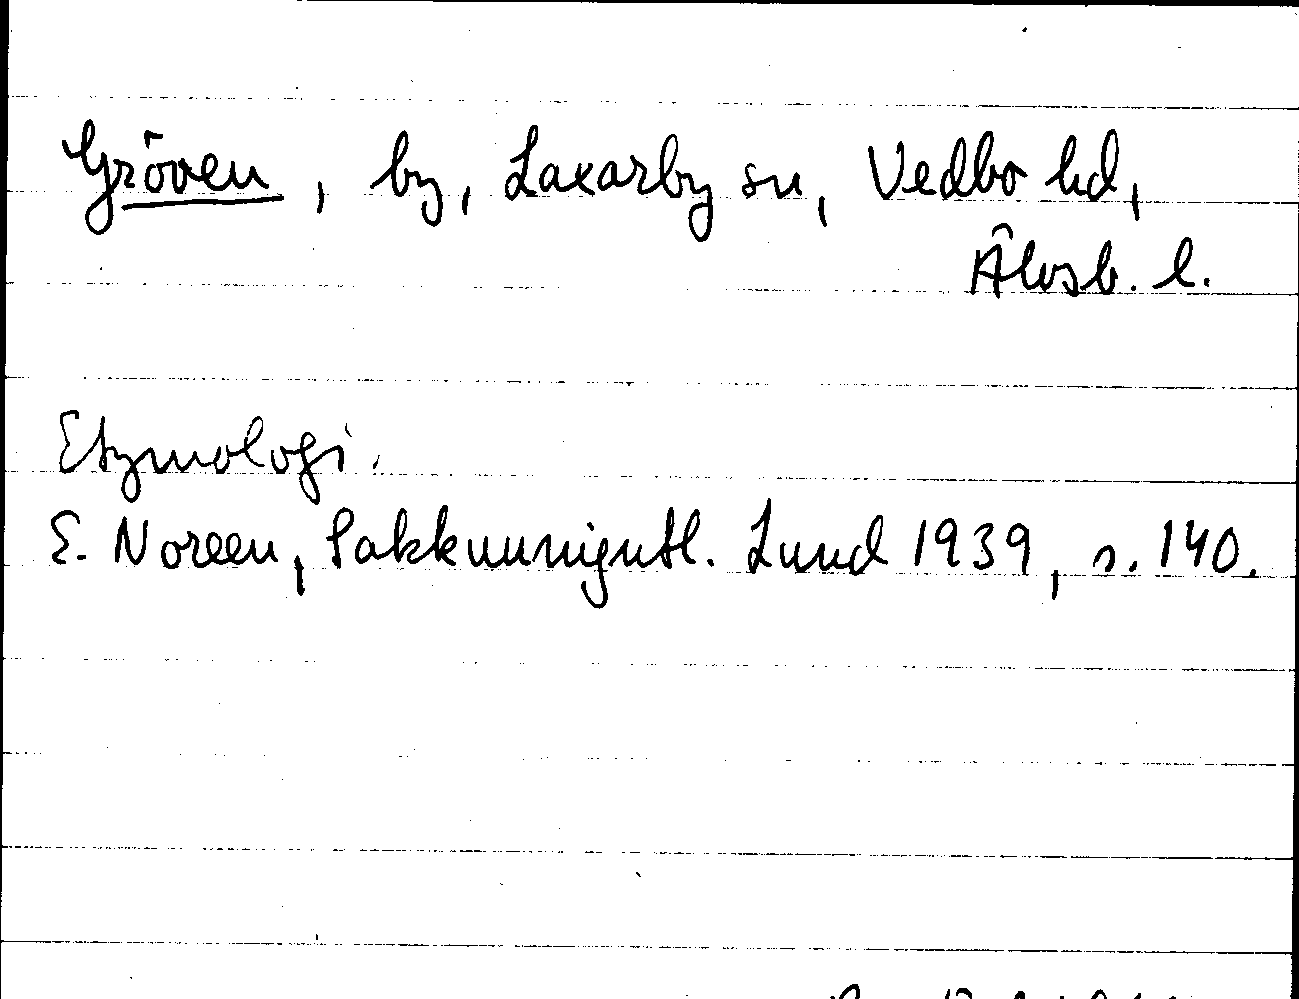 Gröven, by, Laxarby sn, Vedbo hd,
Älvsb. l.
Etymologi.
E. Noreen, Sakkunnigutl. Lund 1939, s. 140.